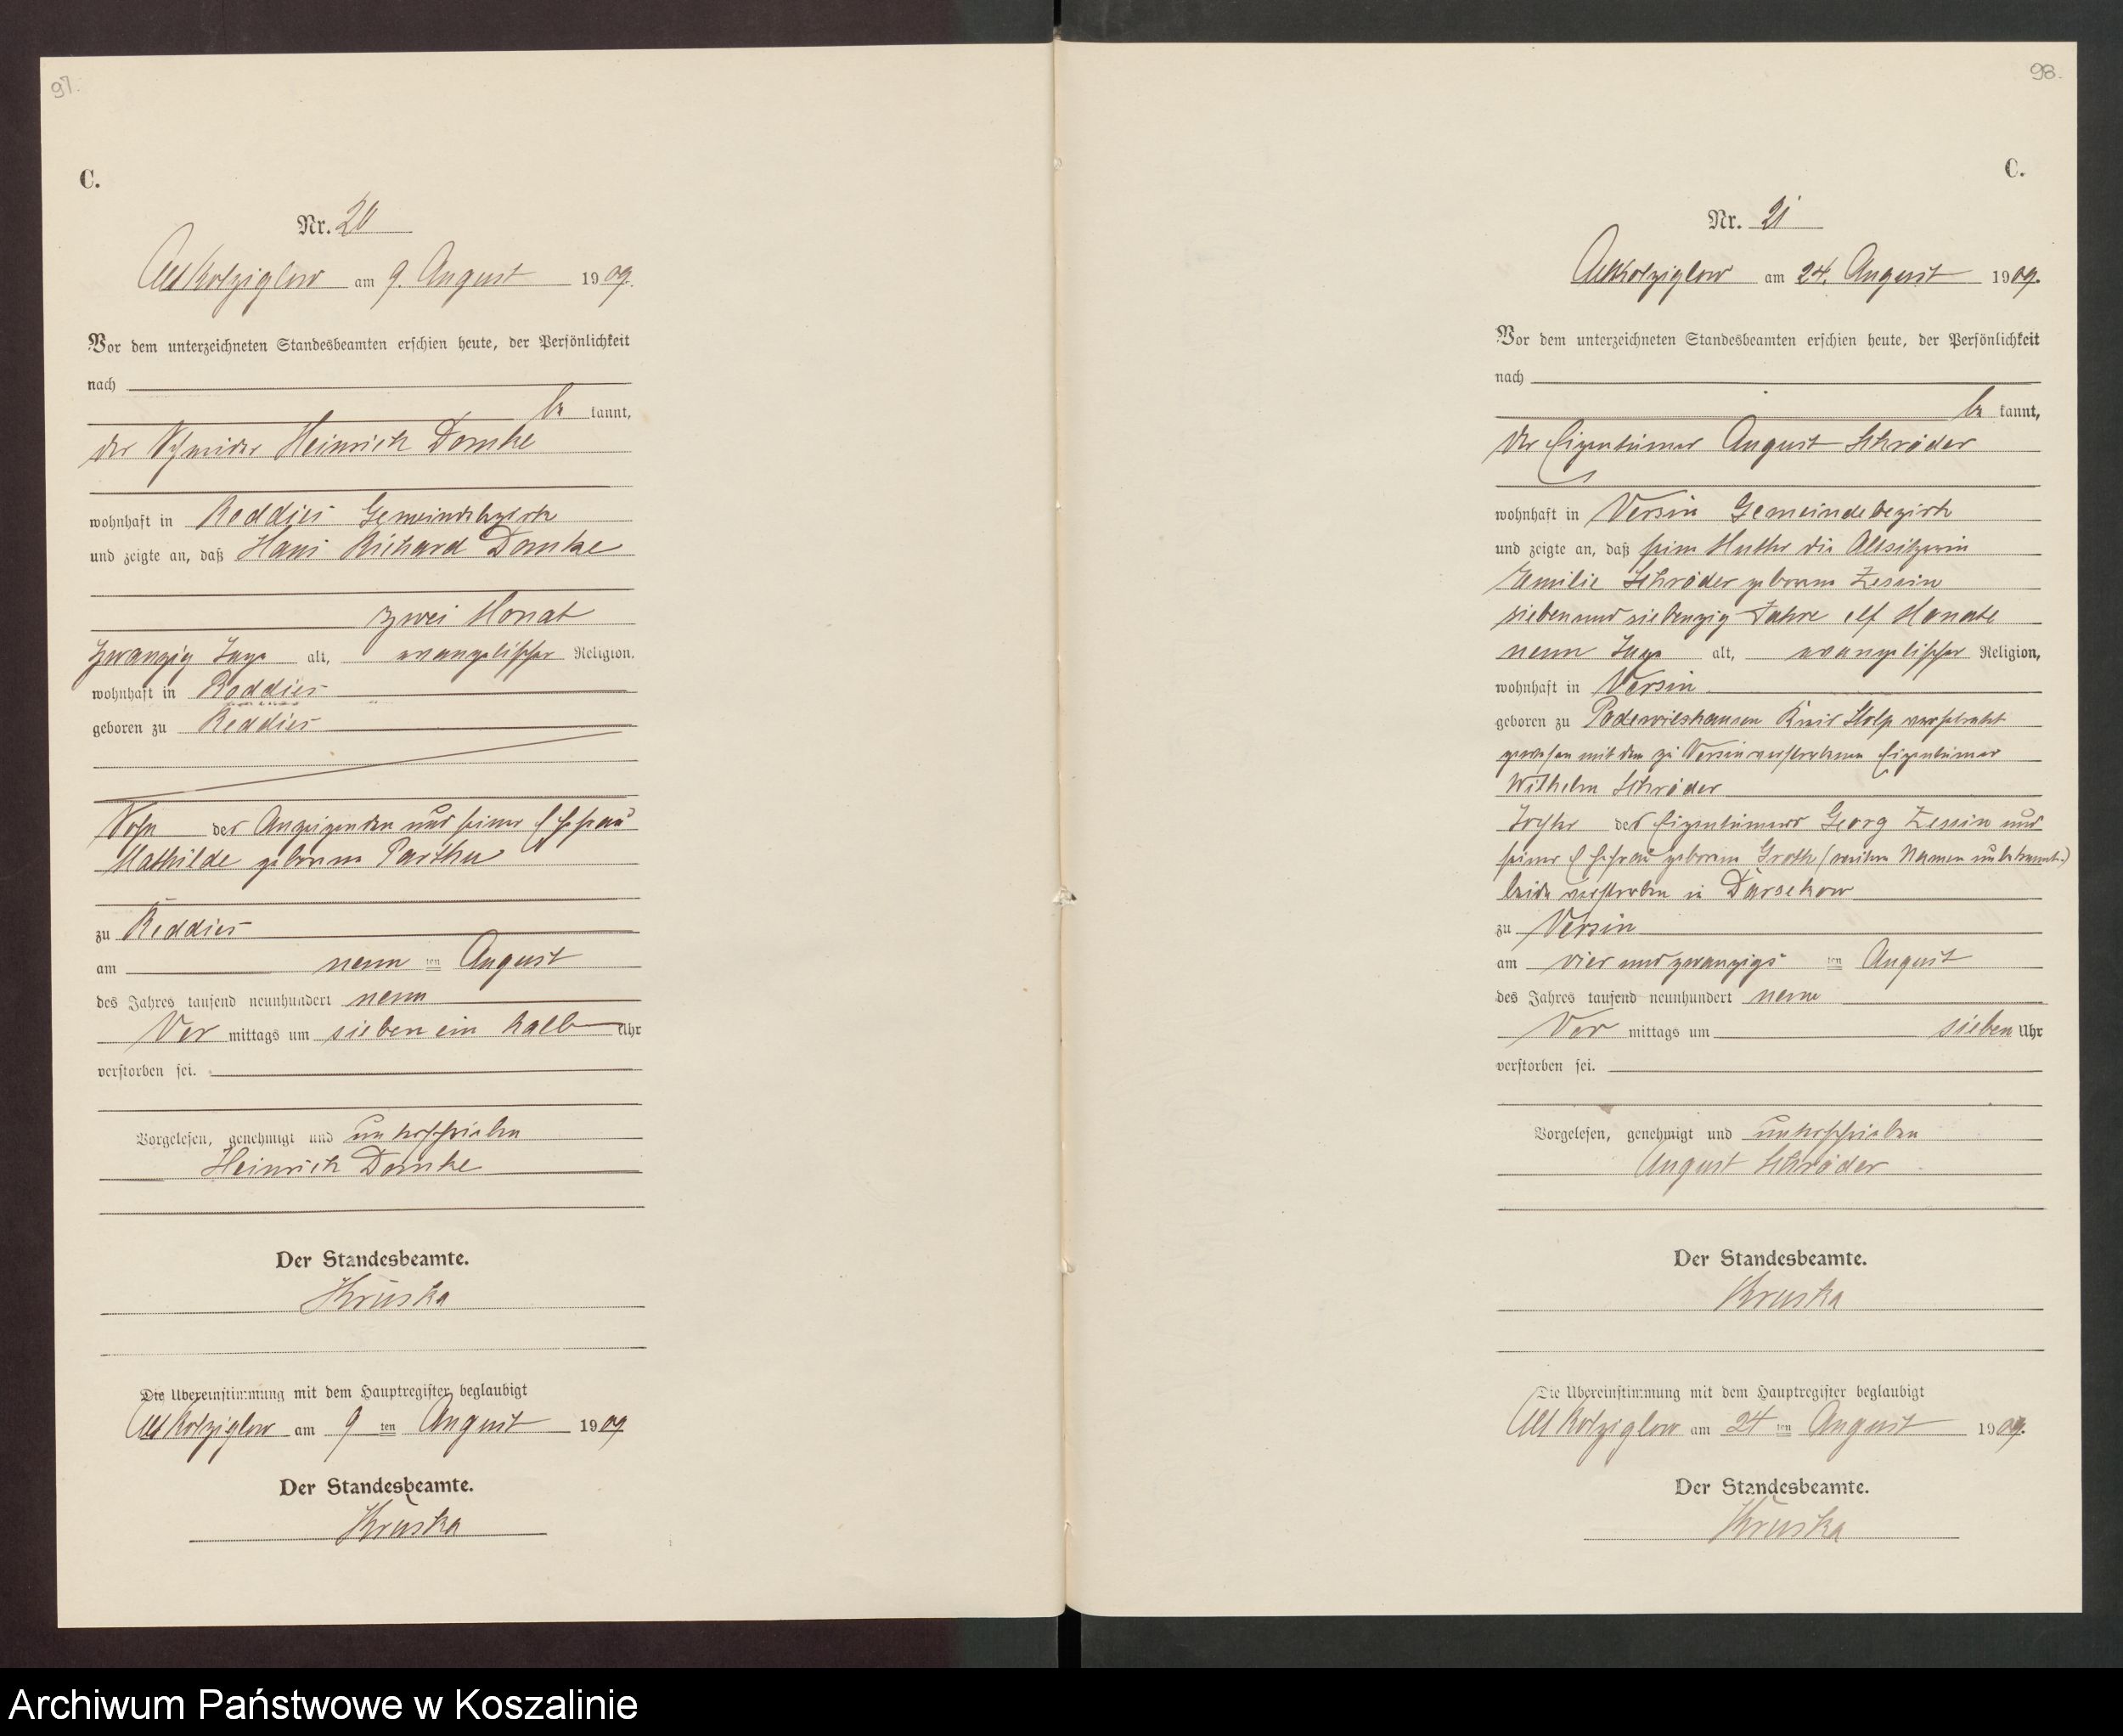 97.
C.
Nr. 20
Alt Kolziglow am 9. August 1909.
Vor dem unterzeichneten Standesbeamten erschien heute, der Persönlichkeit
nach
be kannt,
der Schneider Heinrich Domke
wohnhaft in Reddies Gemeindebezirk
und zeigte an, daß Hans Richard Domke
zwei Monat
zwanzig Tage alt, evangelischer Religion,
wohnhaft in Reddies
geboren zu Reddies
Sohn des Anzeigenden und seiner Ehefrau
Mathilde geborene
zu Reddies
am neun ten August
des Jahres tausend neunhundert neun
Vor mittags um sieben ein halb Uhr
verstorben sei.
Vorgelesen, genehmigt und unterschrieben
Heinrich Domke
Der Standesbeamte.
Kruska
Die Übereinstimmung mit dem Hauptregister beglaubigt
Alt Kolziglow am 9 ten August 1909
Der Standesbeamte.
Kruska
98.
C.
Nr. 21
Alt Kolziglow am 24. August 1909.
Vor dem unterzeichneten Standesbeamten erschien heute, der Persönlichkeit
nach
be kannt,
der Eigentümer August Schröder
wohnhaft in Versin Gemeindebezirk
und zeigte an, daß seine Mutter die Altsitzerin
Emilie Schröder geborene Zessin
siebenund siebenzig Jahre elf Monate
neun Tage alt, evangelischer Religion,
wohnhaft in Versin
geboren zu Podewilshausen Kreis Stolp verheiratet
gewesen mit dem zu Versin verstorbenen Eigentümer
Wilhelm Schröder
Tochter des Eigentümers Georg Zessin und
seiner Ehefrau geborene Groth (weitere Namen unbekannt.)
beide verstorben in Darsekow
zu Versin
am vier und zwanzigs ten August
des Jahres tausend neunhundert neun
Vor mittags um sieben Uhr
verstorben sei.
Vorgelesen, genehmigt und unterschrieben
August Schröder
Der Standesbeamte.
Kruska
Die Übereinstimmung mit dem Hauptregister beglaubigt
Alt Kolziglow am 24 ten August 1909.
Der Standesbeamte.
Kruska
Archiwum Państwowe w Koszalinie